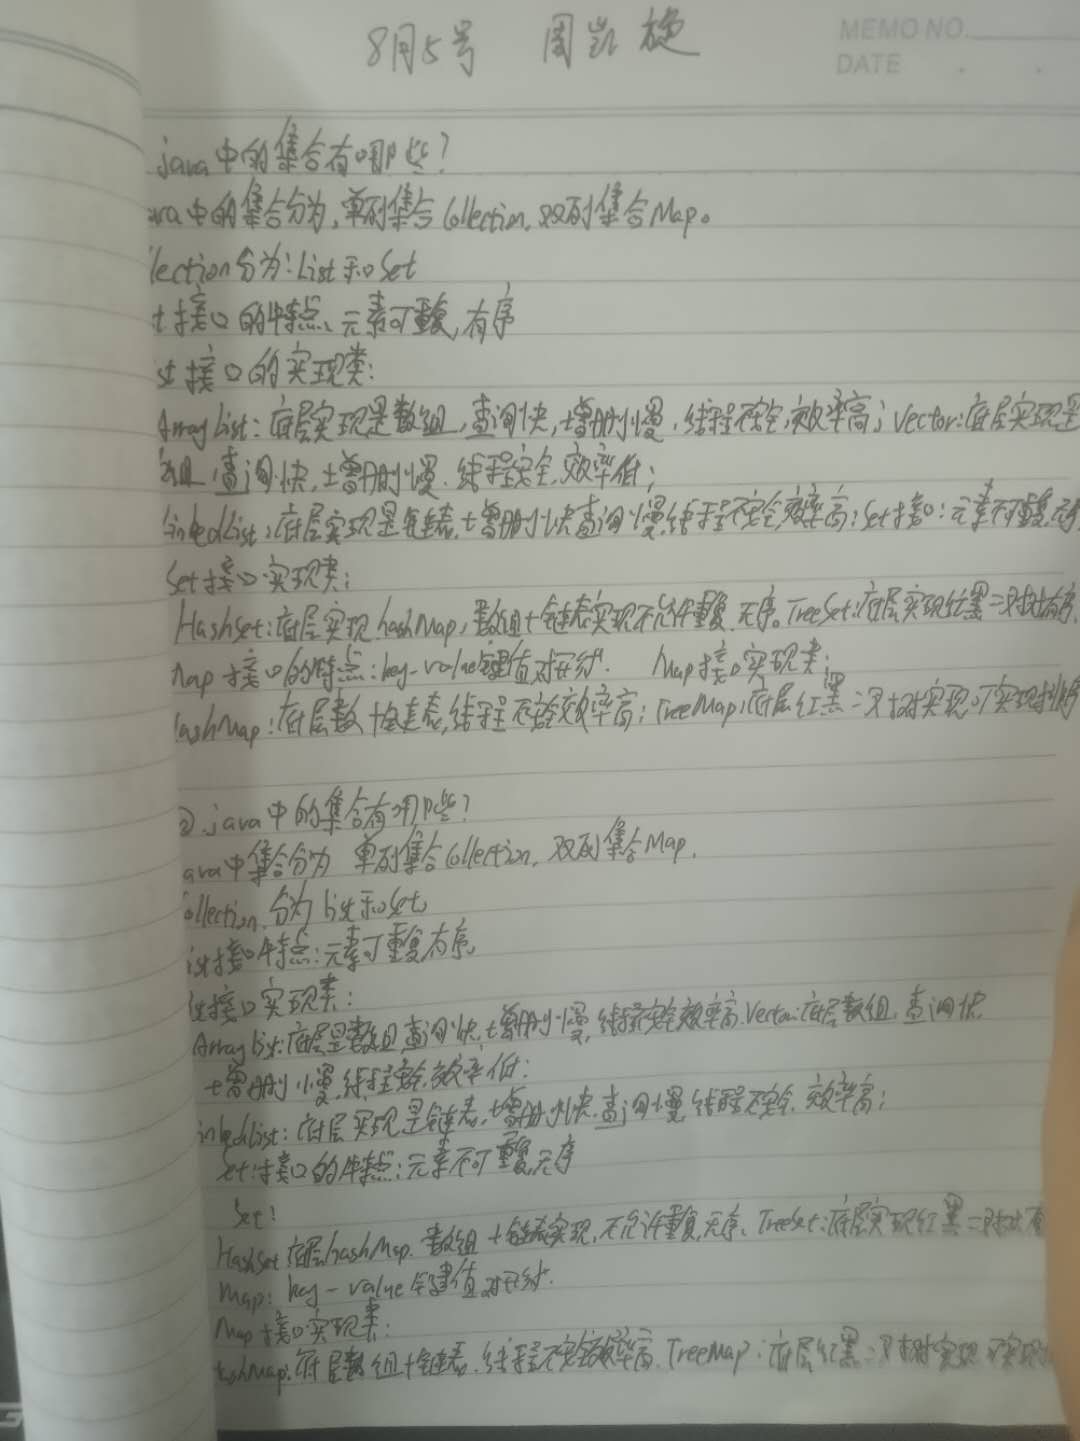 8月5号 周凯旋
MEMO NO.
DATE . .
java中的集合有哪些?
ava中的集合分为,单列集合Collection,双列集合Map。
lection分为:List和Set
t接口的特点、元素可重复,有序
st接口的实现类:
ArrayList:底层实现是数组,查询快,增删慢,线程不安全,效率高;Vector:底层实现是
组,查询快,增删慢,线程安全,效率低;
inkedList:底层实现是链表,增删快查询慢,线程不安全,效率高;Set接口:元素不可重复,无序
Set接口实现类:
HashSet:底层实现hashMap,数组+链表实现不允许重复,无序。TreeSet:底层实现红黑二叉树有序.
Map接口的特点:key-value键值对形式. Map接口实现类:
HashMap:底层数+链表,线程不安全效率高;TreeMap:底层红黑二叉树实现可实现排序
②.java中的集合有哪些?
ava中集合分为 单列集合Collection,双列集合Map.
ollection 分为 List和Set,
ist接口特点:元素可重复,有序,
ist接口实现类:
ArrayList:底层是数组 查询快,增删慢,线程不安全效率高.Vector:底层数组,查询快,
增删慢,线程安全,效率低:
inkedList:底层实现是链表,增删快,查询慢,线程不安全,效率高;
Set:接口的特点:元素不可重复,无序
Set:
HashSet 底层hashMap.数组+链表实现,不允许重复,无序、TreeSet:底层实现红黑二叉树 有
Map: key-value键值对形式.
Map接口实现类:
HashMap:底层数组+链表,线程不安全效率高,TreeMap:底层红黑二叉树实现 可实现